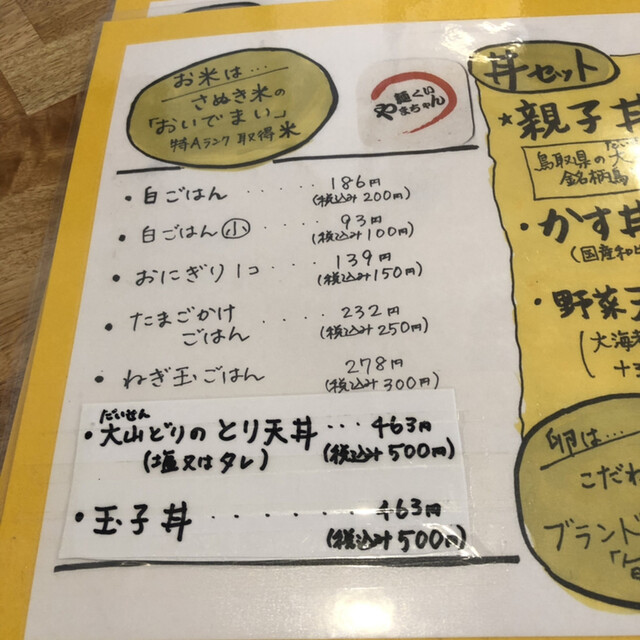 お米は…
さぬき米の
「おいでまい」
特Aランク取得米
麺くい
やまちゃん
・白ごはん ‥‥‥ 186円
(税込み200円)
・白ごはん 小 ‥‥ 93円
(税込み100円)
・おにぎり1コ ‥‥‥ 139円
(税込み150円)
・たまごかけ
ごはん ‥‥‥ 232円
(税込み250円)
・ねぎ玉ごはん 278円
(税込み300円)
だいせん
・大山どりの とり天丼 ‥‥ 463円
(塩又はタレ) (税込み500円)
・玉子丼 ‥‥‥‥ 463円
(税込み500円)
丼セット
★親子丼
鳥取県の大
銘柄鳥
・かす丼
(国産和
・野菜天
(大海老
十
卵は…
こだわ
ブランド
「